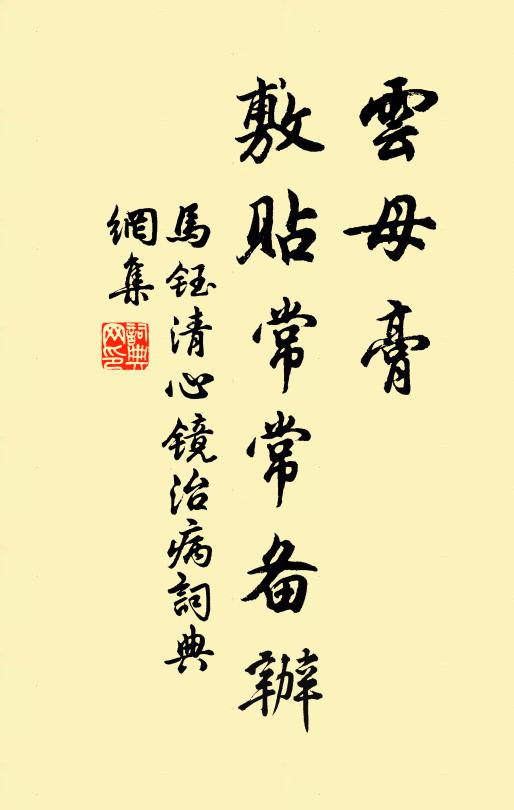 雲母膏
敷貼常常备辦
馬鈺清心镜治病詞典
網集
詞典
网印